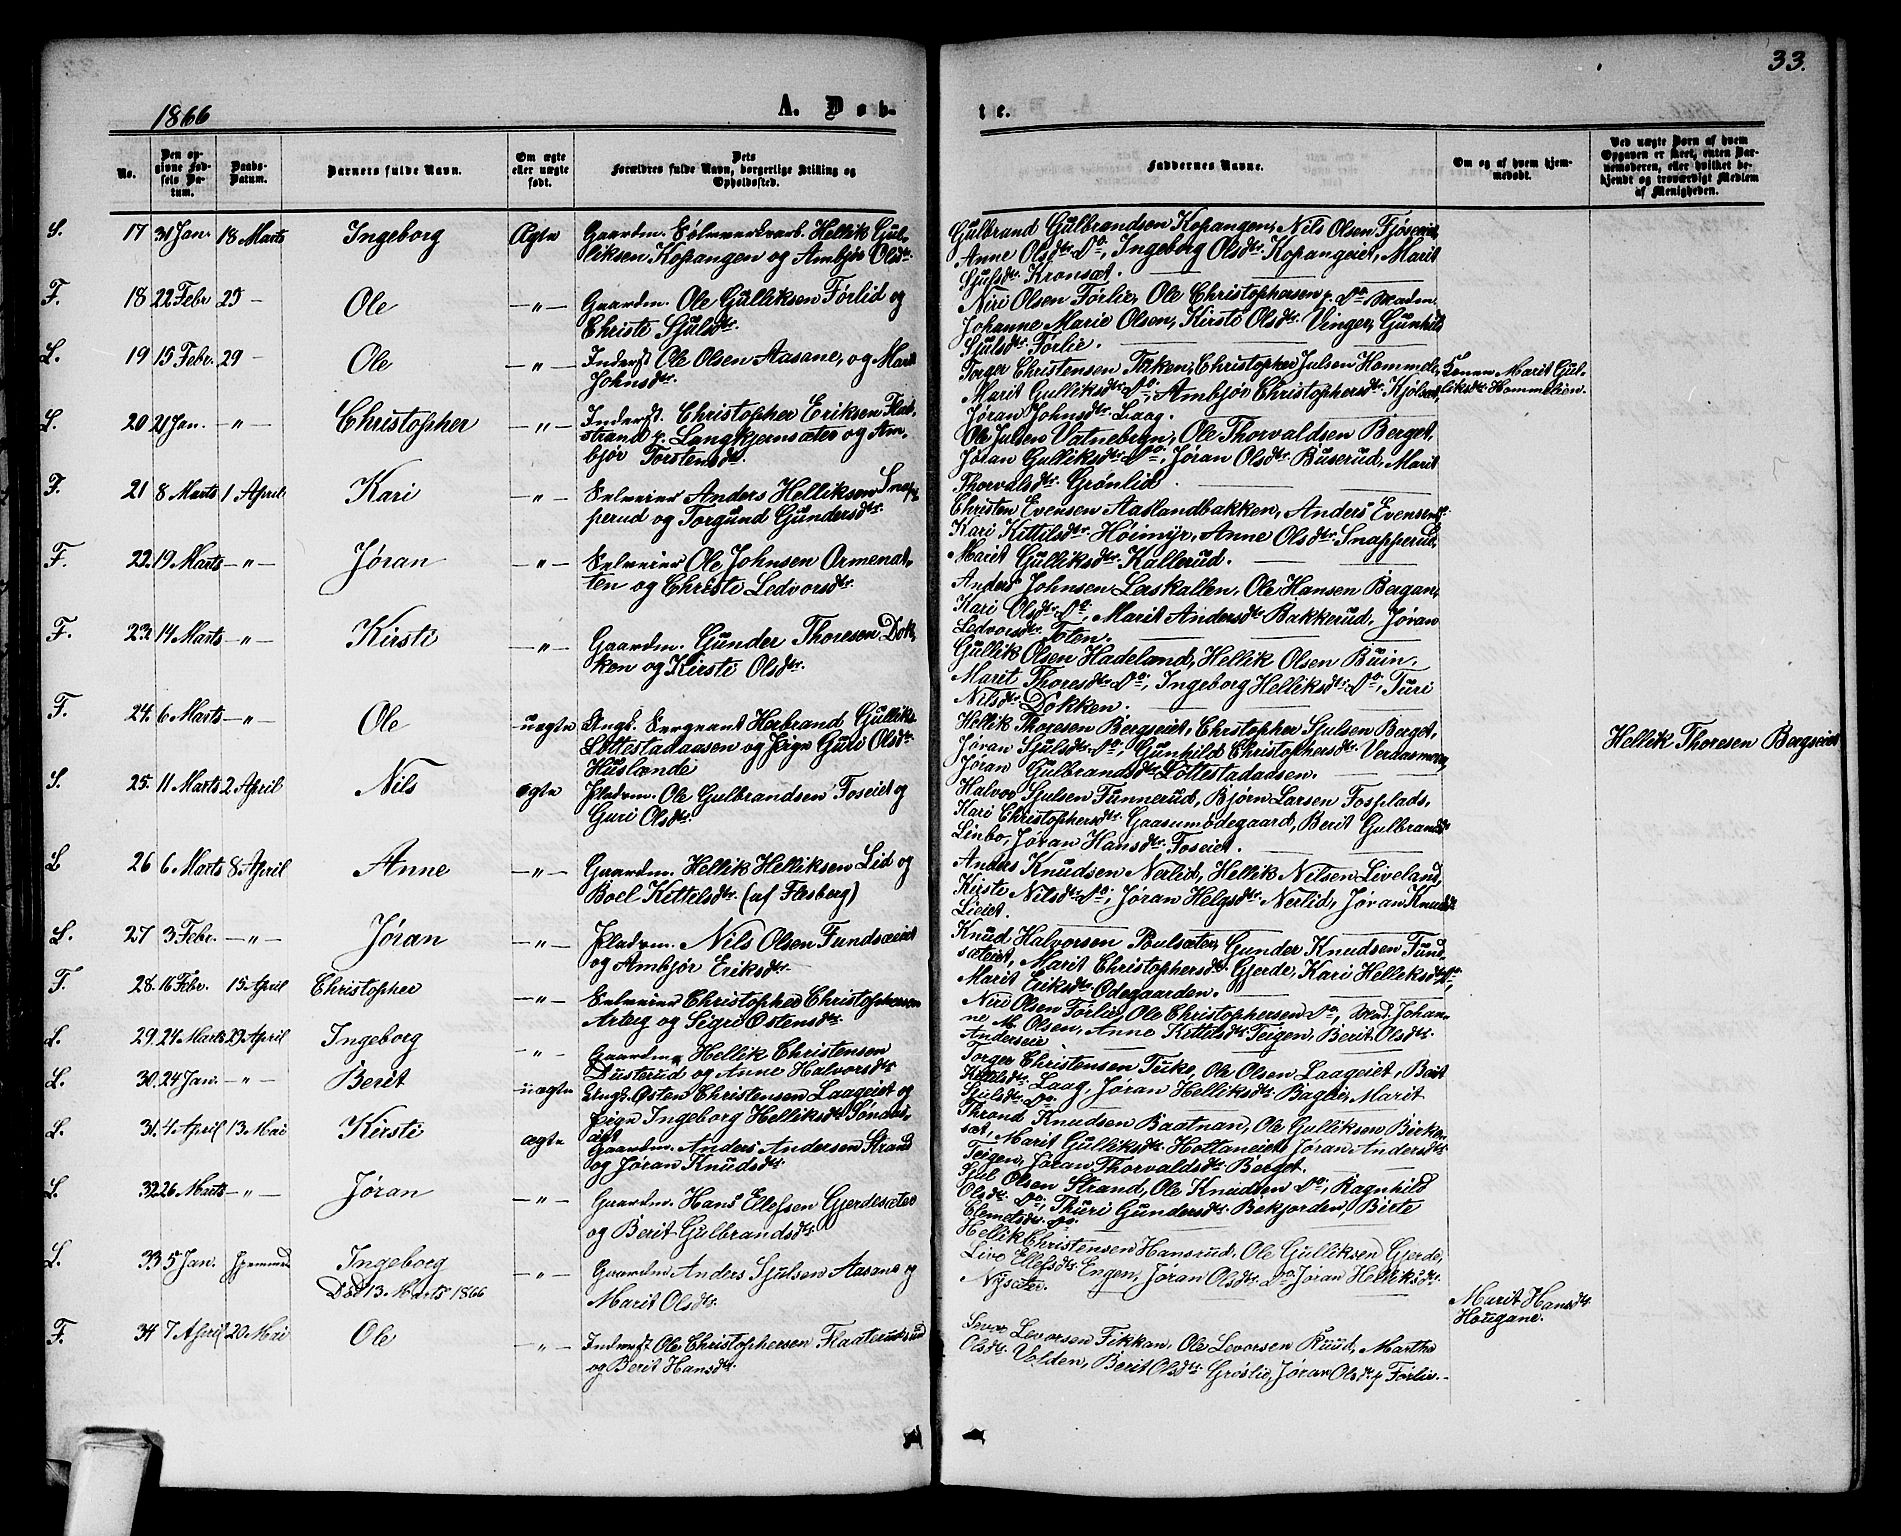 33.
1866
A. Døb-
te.
No.
Den op-
givne Fød-
sels Da-
tum.
Daabs-
Datum.
Barnets fulde Navn.
Om ægte
eller uægte
født.
Dets
Forældres fulde Navn, borgerlige Stilling og
Opholdssted.
Faddernes Navne.
Om og af hvem hjem-
medøbt.
Ved uægte Børn af hvem
Opgaven er skeet, enten Bar-
nemoderen, eller hvilket be-
kjendt og troværdigt Medlem
af Menigheden.
S. 17 31 Jan. 18 Marts Ingeborg Ægte
Gaardm. Sølvverksarb. Hellik Gul-
liksen Kopangen og Ambjør Olsdtr.
Gulbrand Gulbrandsen Kopangen, Nils Olsen Fjøseiet,
Anne Olsdtr. Do, Ingeborg Olsdtr. Kopangeiet, Marit
Sjulsdtr. Kronsæt.
F. 18 22 Febr 25 — Ole —"—
Gaardm. Ole Gulliksen Førlid og
Christi Sjulsdtr.
Niri Olsen Førlie, Ole Christophersen p. Do Madm.
Johanne Marie Olsen, Kirsti Olsdtr. Vinger, Gunhild
Sjulsdtr. Førlie.
L. 19 15 Febr. 29 — Ole —"—
Inderst Ole Olsen Aasane, og Marit
Johnsdtr.
Torger Christensen Tuken, Christopher Julsen Hommele,
Marit Gulliksdtr. Do, Ambjør Christophersdtr. Kjølsæt,
Jøran Johnsdtr. Laag.
Konen Marit Gul-
liksdtr. Hommelien.
L. 20 21 Jan. —"— Christopher —"—
Inderst. Christopher Eriksen Flat-
strand p. Langkjernsæter og Am-
bjør Torstensdtr.
Ole Julsen Vatnebryn, Ole Thorvaldsen Berget,
Jøran Gulliksdtr. Do, Jøran Olsdtr. Buserud, Marit
Thorvalsdtr. Grønlid.
F. 21 8 Marts 1 April Kari —"—
Selveier Anders Helliksen Snap-
perud og Torgund Gundersdtr.
Christen Evensen Aaslandbakken, Anders Evensen Do
Kari Kittilsdtr. Høimyr, Anne Olsdtr. Snapperud,
Marit Gulliksdtr. Kallerud.
F. 22. 19 Marts —"— Jøran —"—
Selveier Ole Johnsen Ormenat-
ten og Christi Ledvorsdtr.
Anders Johnsen Lerskallen, Ole Hansen Bergan,
Kari Olsdtr. Do, Marit Andersdtr. Bakkerud, Jøran
Ledvorsdtr. Toten.
F. 23. 14 Marts —"— Kirsti —"—
Gaardm. Gunder Thoresen Dok-
ken og Kirsti Olsdtr.
Gullik Olsen Hadeland, Hellik Olsen Buin,
Marit Thoresdtr. Do, Ingeborg Helliksdtr. Do, Turi
Nilsdtr. Dokken.
F. 24. 6 Marts —"— Ole uægte
Ungk. Sergeant Herbrand Gulliks.
Løttestadaasen og Pige Guri Olsdtr.
Huslænde
Hellik Thoresen Bergseiet, Christopher Sjulsen Berget,
Jøran Sjulsdtr. Do, Gunhild Christophersdtr. Veraasmoen,
Jøran Gulbrandsdtr. Løttestadaasen.
Hellik Thoresen Bergseiet
S. 25. 11 Marts 2 April Nils ægte
Pladsm. Ole Gulbrandsen Foseiet og
Guri Olsdtr.
Halvor Sjulsen Funnerud, Bjørn Larsen Fosplads,
Kari Christophersdtr. Gaasumødegaard, Berit Gulbrandsdtr
Linbo, Jøran Hansdtr. Foseiet.
L 26 6 Marts 8 April Anne —"—
Gaardm. Hellik Helliksen Lid og
Boel Kettilsdtr. (af Flesberg)
Anders Knudsen Nerlid, Hellik Nilsen Liveland,
Kirsti Nilsdtr. Do, Jøran Helgsdtr. Nerlid, Jøran Knudsdtr
Lieiet.
L. 27 3 Febr. —"— Jøran —"—
Pladsm. Nils Olsen Fundsæeiet
og Ambjør Eriksdtr.
Knud Halvorsen Poulsæter, Gunder Knudsen Fund-
sæteiet, Marit Christophersdtr. Gjerde, Kari Helliksdtr. Do,
Marit Eriksdtr. Ødegaarden.
F. 28. 16 Febr. 15 April Christopher —"—
Selveier Christopher Christophersen
Arteig og Sigri Østensdtr.
Niri Olsen Førlie, Ole Christophersen Do, Mad. Johan-
ne M. Olsen, Anne Kittilsdtr. Teigen, Berit Olsdtr.
Anderseie
L. 29. 24 Marts 29 April Ingeborg —"—
Gaardm. Hellik Christensen
Dusterud og Anne Halvorsdtr.
Torger Christensen Tuke, Ole Olsen Laageiet, Berit
Kittilsdtr. Laag, Jøran Helliksdtr. Baglie, Marit
Sjulsdtr. Do.
L. 30. 24 Jan. —"— Berit uægte
Ungk. Østen Christensen Laageiet og
Pige Ingeborg Helliksdtr. Søndre-
Thrond Knudsen Baatnan, Ole Gulliksen Birke-
sæt, Marit Gulliksdtr. Hottaneiet, Jøran Andersdtr.
Teigen, Jøran Thorvaldsdtr. Berget.
L. 31. 4 April 13 Mai Kirsti ægte
Gaardm. Anders Andersen Strand
og Jøran Knudsdtr.
Sjul Olsen Strand, Ole Knudsen Do, Ragnhild
Olsdtr. Do, Thuri Gundersdtr. Bekjorden, Birte
Clemetsdtr. Do.
L. 32 26 Marts —"— Jøran —"—
Gaardm. Hans Ellefsen Gjerdesæter
og Berit Gulbrandsdtr.
Hellik Christensen Hansrud, Ole Gulliksen Gjerde,
Live Ellefsdtr. Engen, Jøran Olsdtr. Do, Jøran Helliksdtr.
Nysæter.
L. 33 5 Jan. Hjemmed. Ingeborg —"—
Død 13 Marts 1866
Gaardm Anders Sjulsen Aasane og
Marit Olsdtr.
Marit Hansdtr.
Hougane.
F. 34 7 April 20 Mai Ole —"—
Inderst Ole Christophersen Flaaterudsund
og Berit Hansdtr.
Levor Levorsen Fikkan, Ole Levorsen Ruud, Marthe
Olsdtr. Volden, Berit Olsdtr. Grøslie, Jøran Olsdtr. p Førlie.